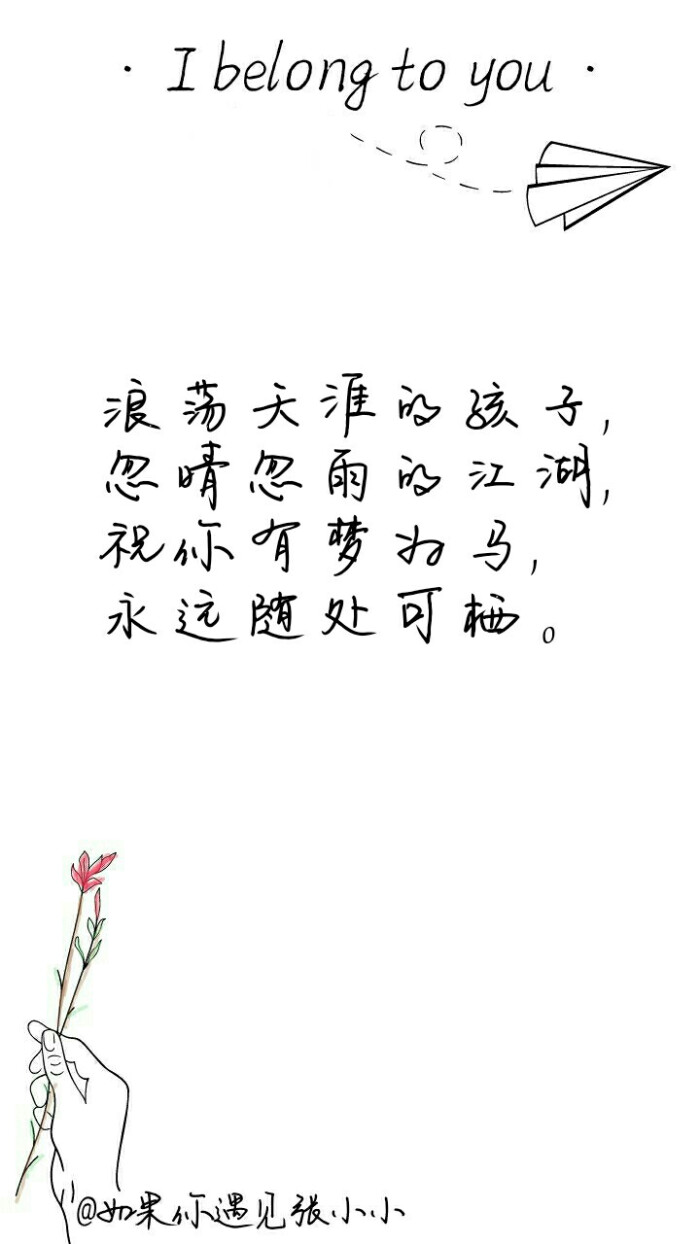 · I belong to you ·
浪荡天涯的孩子,
忽晴忽雨的江湖,
祝你有梦为马,
永远随处可栖。
@如果你遇见张小小